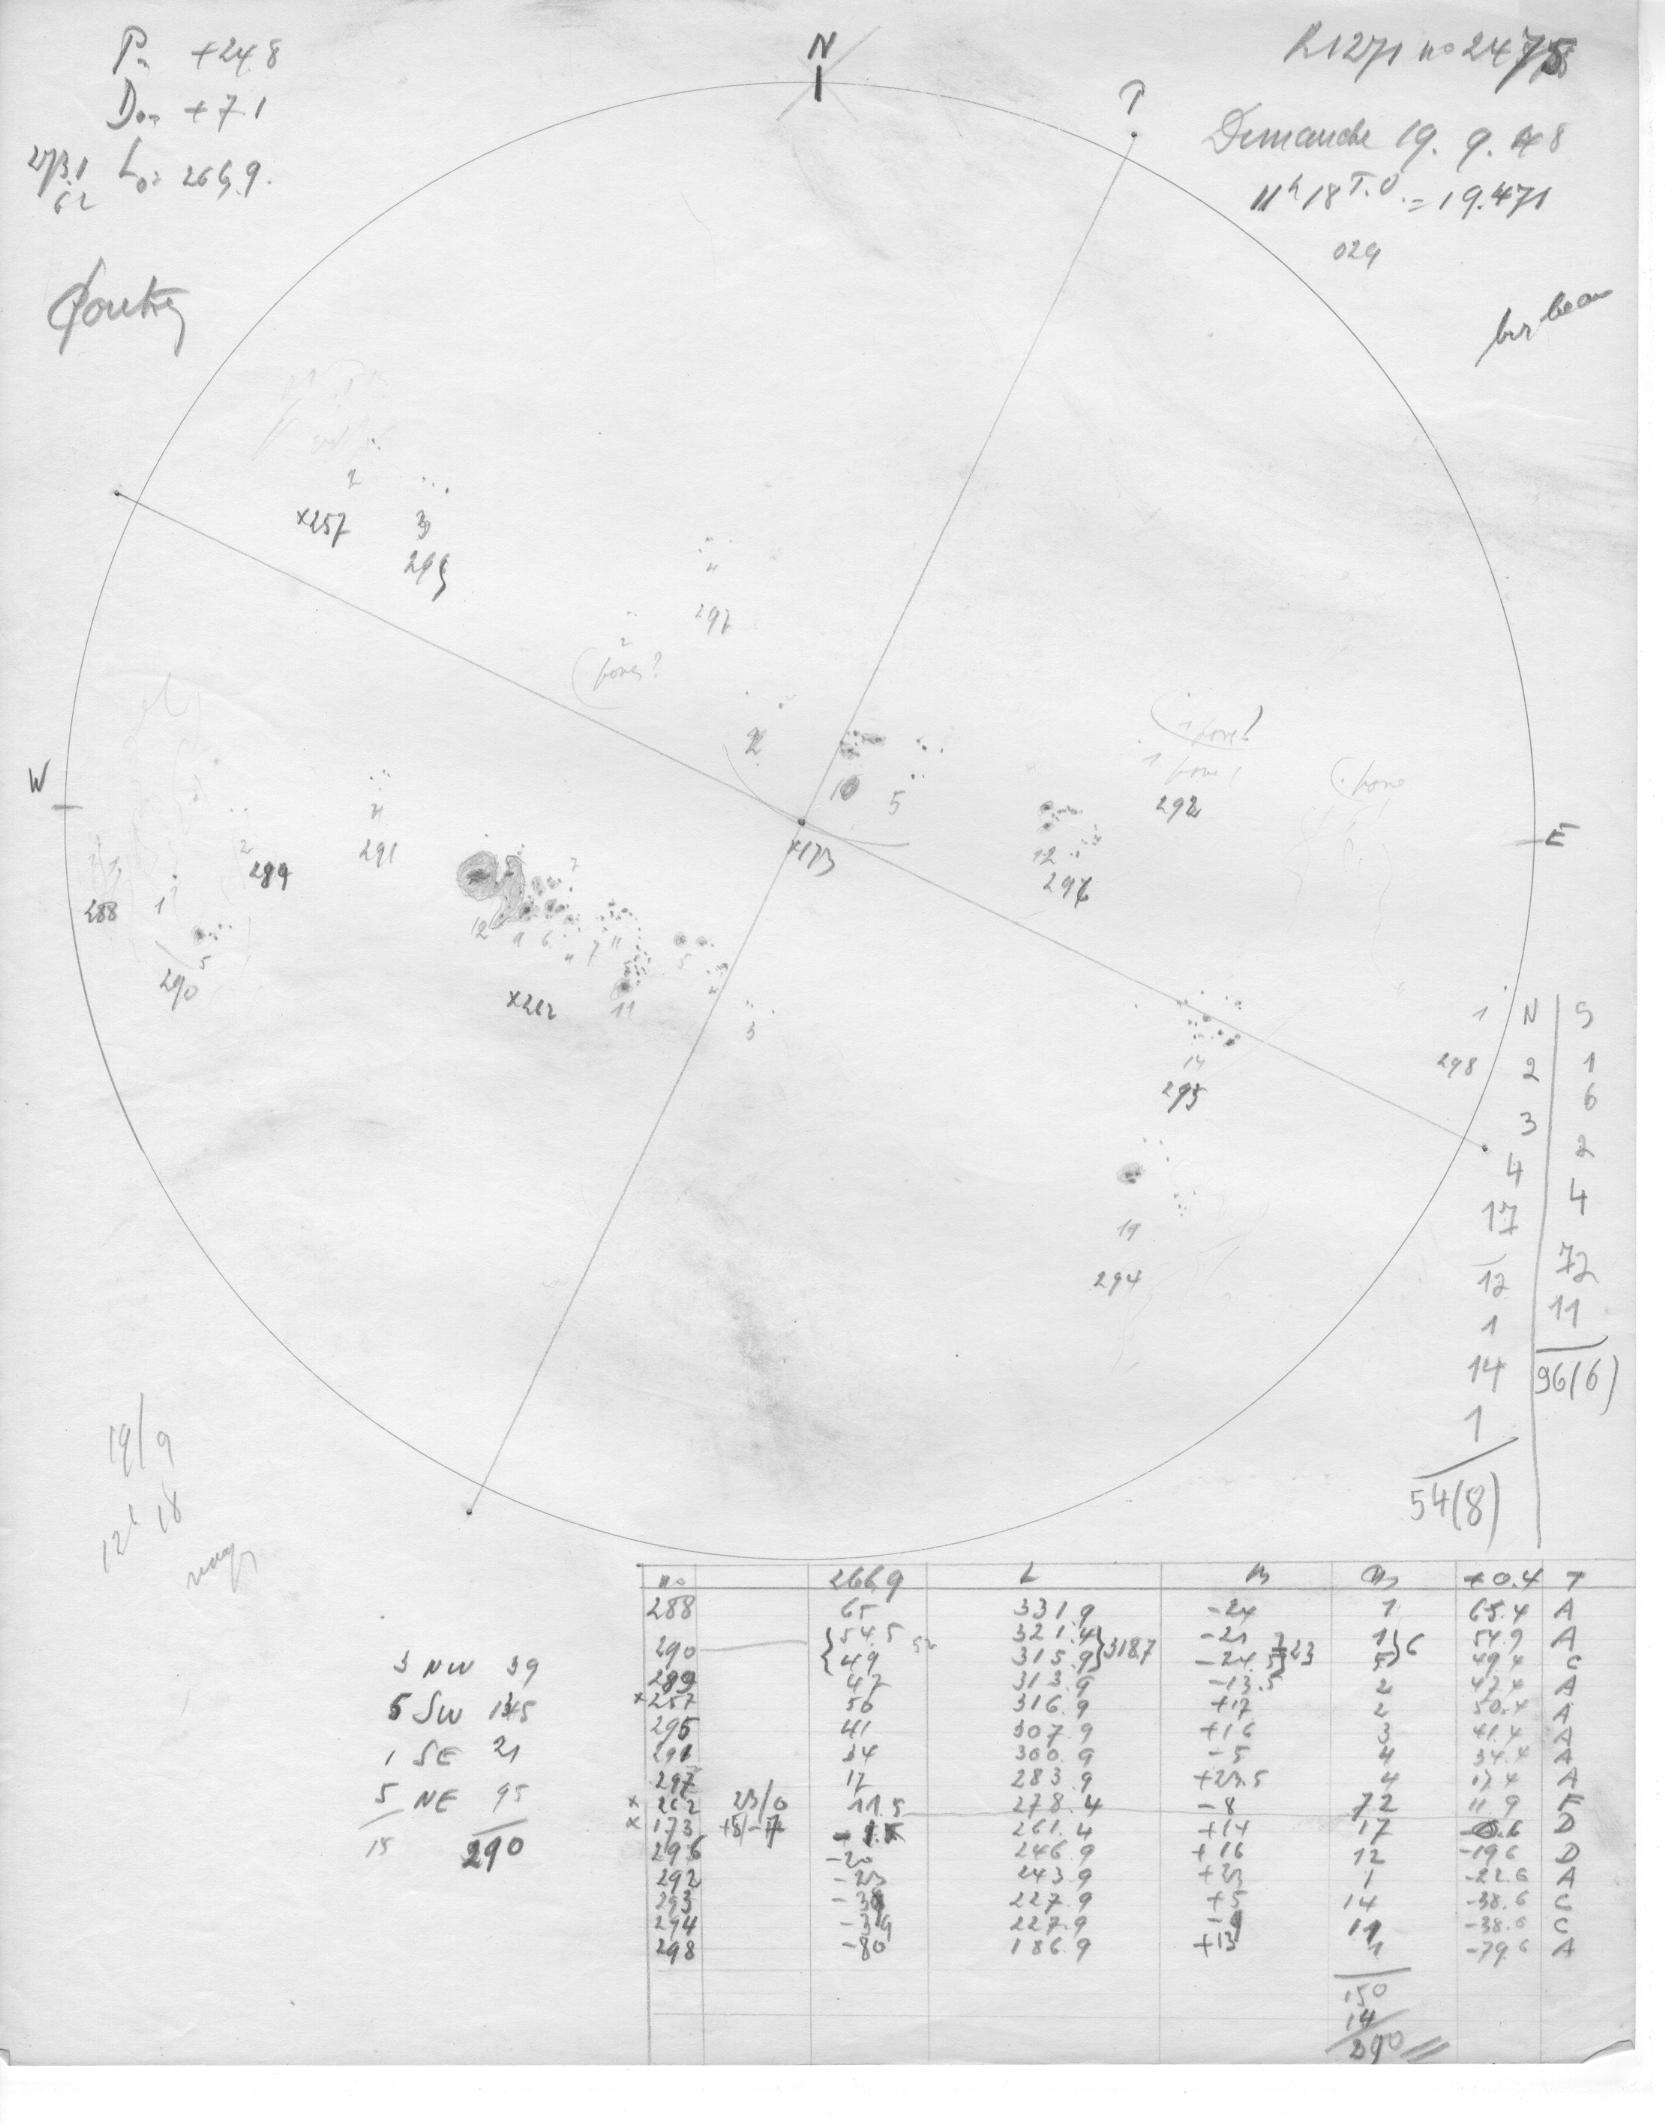 P= +24.8
D0= +7.1
L0= 266.9.
N
P
R1271 no 2475
Dimanche 19. 9. 48
11h18 T.U. = 19.471
029
2
×257
3
295
4
297
2
(pores?
2
10
5
×173
1 pore?
1 pore!
292
(. pore
W
E
4
291
2
289
288
1
5
290
12
7
9
6
4
7
11
5
4
11
×262
3
12
296
14
295
11
294
1
298
N | S
2 | 1
3 | 6
4 | 2
17 | 4
12 | 72
1 | 11
14 | 96(6)
1
54(8)
19/9
12h 18
no 266.9 L B +0.4 T
288 65 331.9 -24 1 65.4 A
290 54.5 321.4 -21 1 54.9 A
49 315.9 318.7 -24.5 23 5 6 49.4 C
289 47 313.9 -13.5 2 47.4 A
×257 50 316.9 +17 2 50.4 A
295 41 307.9 +16 3 41.4 A
291 34 300.9 -5 4 34.4 A
297 17 283.9 +23.5 4 17.4 A
×262 23/0 11.5 278.4 -8 72 11.9 F
×173 261.4 +14 17 D
296 -20 246.9 +16 12 -19.6 D
292 -23 243.9 +23 1 -22.6 A
293 227.9 +5 14 -38.6 C
294 -39 227.9 -9 11 -38.6 C
298 -80 186.9 +13 1 -79.6 A
150
14
290
3 NW 39
5 SW 135
1 SE 21
5 NE 95
290